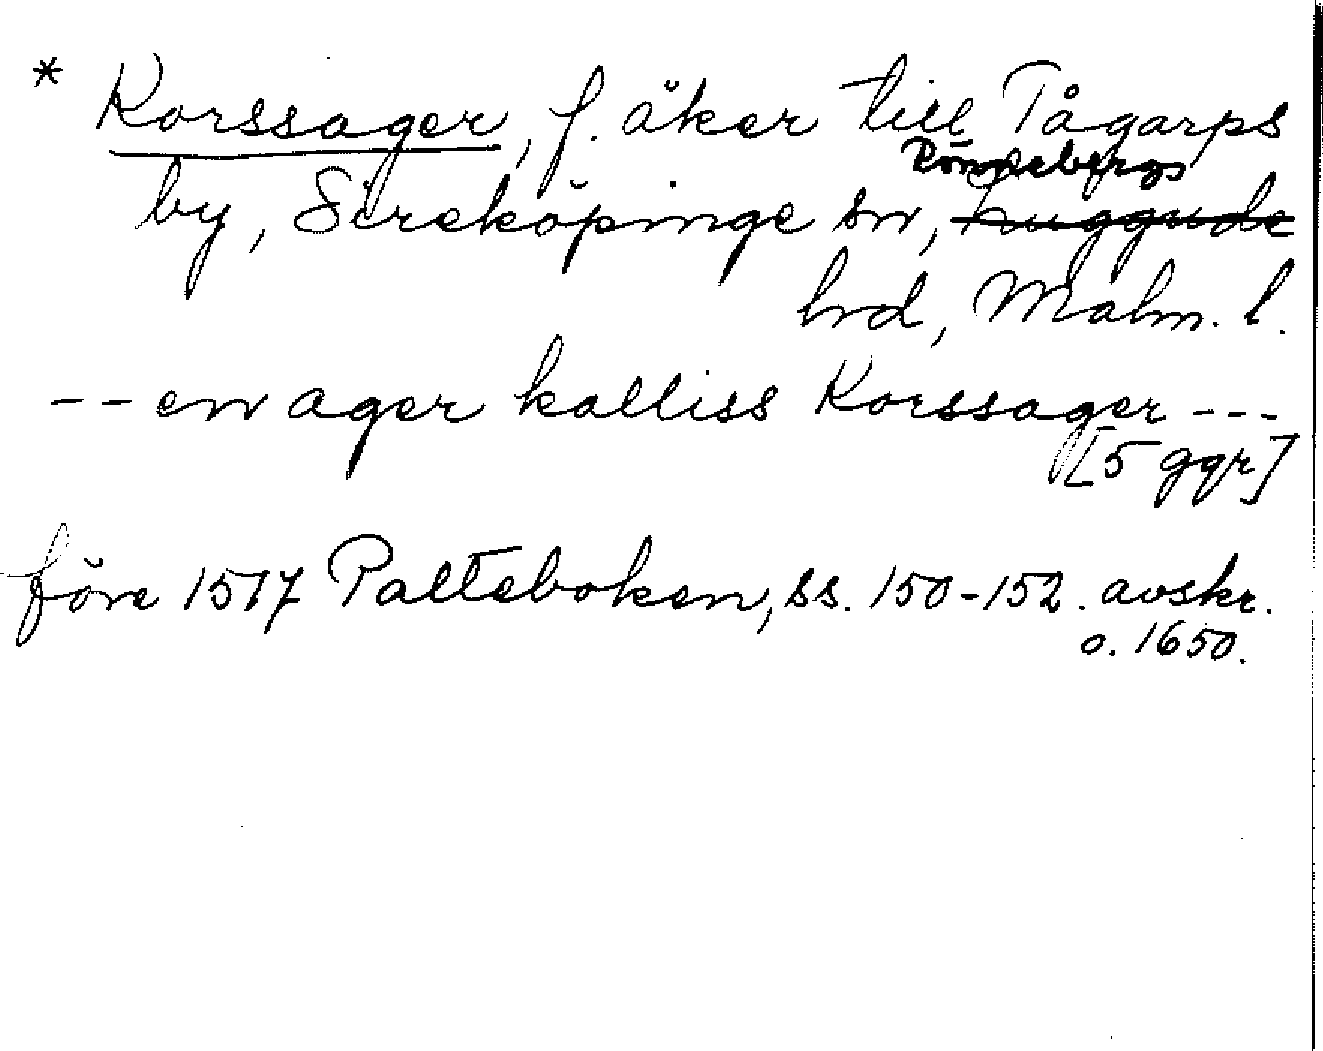 * Korssager, f. åker till Tågarps
Rönnebergs
by, Sireköpinge sn, Luggude
hrd, Malm. l.
-- en ager kalliss Korssager ---
[5 ggr]
före 1517 Palteboken, ss. 150-152. avskr.
o. 1650.